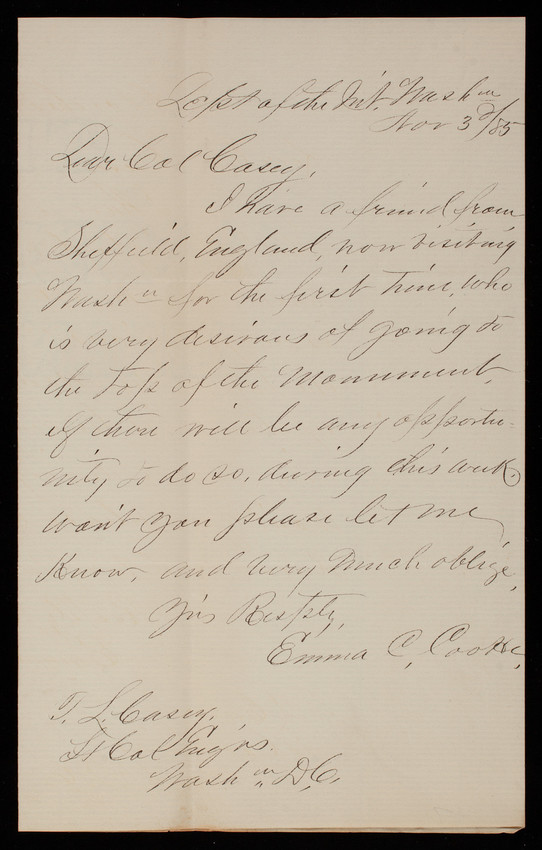 Dept of the Int. Washn
Nov 3d/85
Dear Col Casey,
I have a friend from
Sheffield, England, now visiting
Washn for the first time, who
is very desirous of going to
the top of the Monument,
If there will be any opportu-
nity to do so, during this week,
won't you please let me
know, and very much oblige,
Yrs Respty,
Emma C, Cooke,
T. L. Casey,
Lt Col Eng'rs.
Washn, D.C,